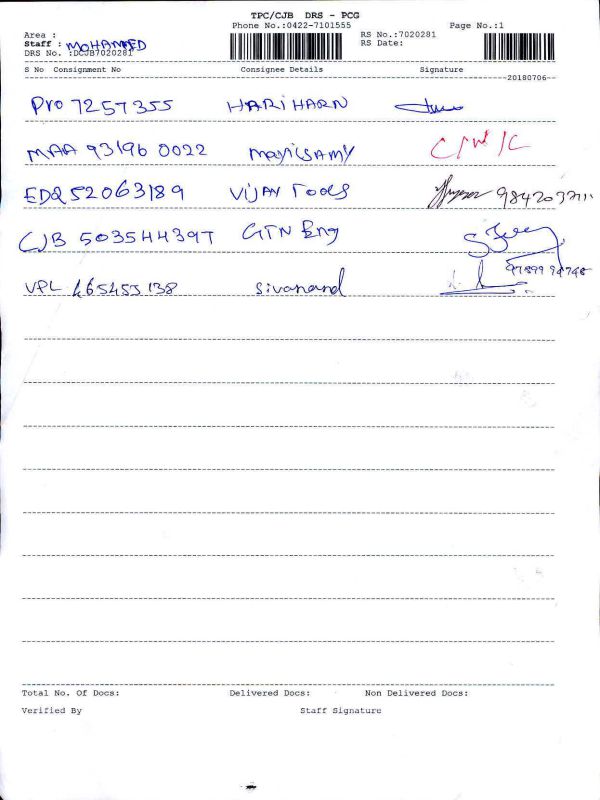 TPC/CJB DRS - PCG
Phone No.:0422-7101555 Page No.:1
Area : RS No.:7020281
Staff : MOHAMMED RS Date:
DRS No. :DCJB7020281
S No Consignment No Consignee Details Signature
20180706
Pro 7257355 HARIHARN
MAA 93196 0022
EDQ 52063189 VIJAY TOOLS
CJB 503544397 GTN Eng
VPL 465455138 Sivanand
Total No. Of Docs: Delivered Docs: Non Delivered Docs:
Verified By Staff Signature